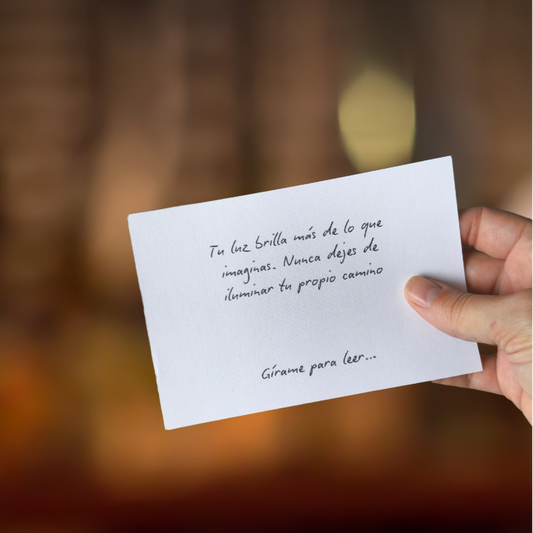 Tu luz brilla más de lo que
imaginas. Nunca dejes de
iluminar tu propio camino
Gírame para leer...